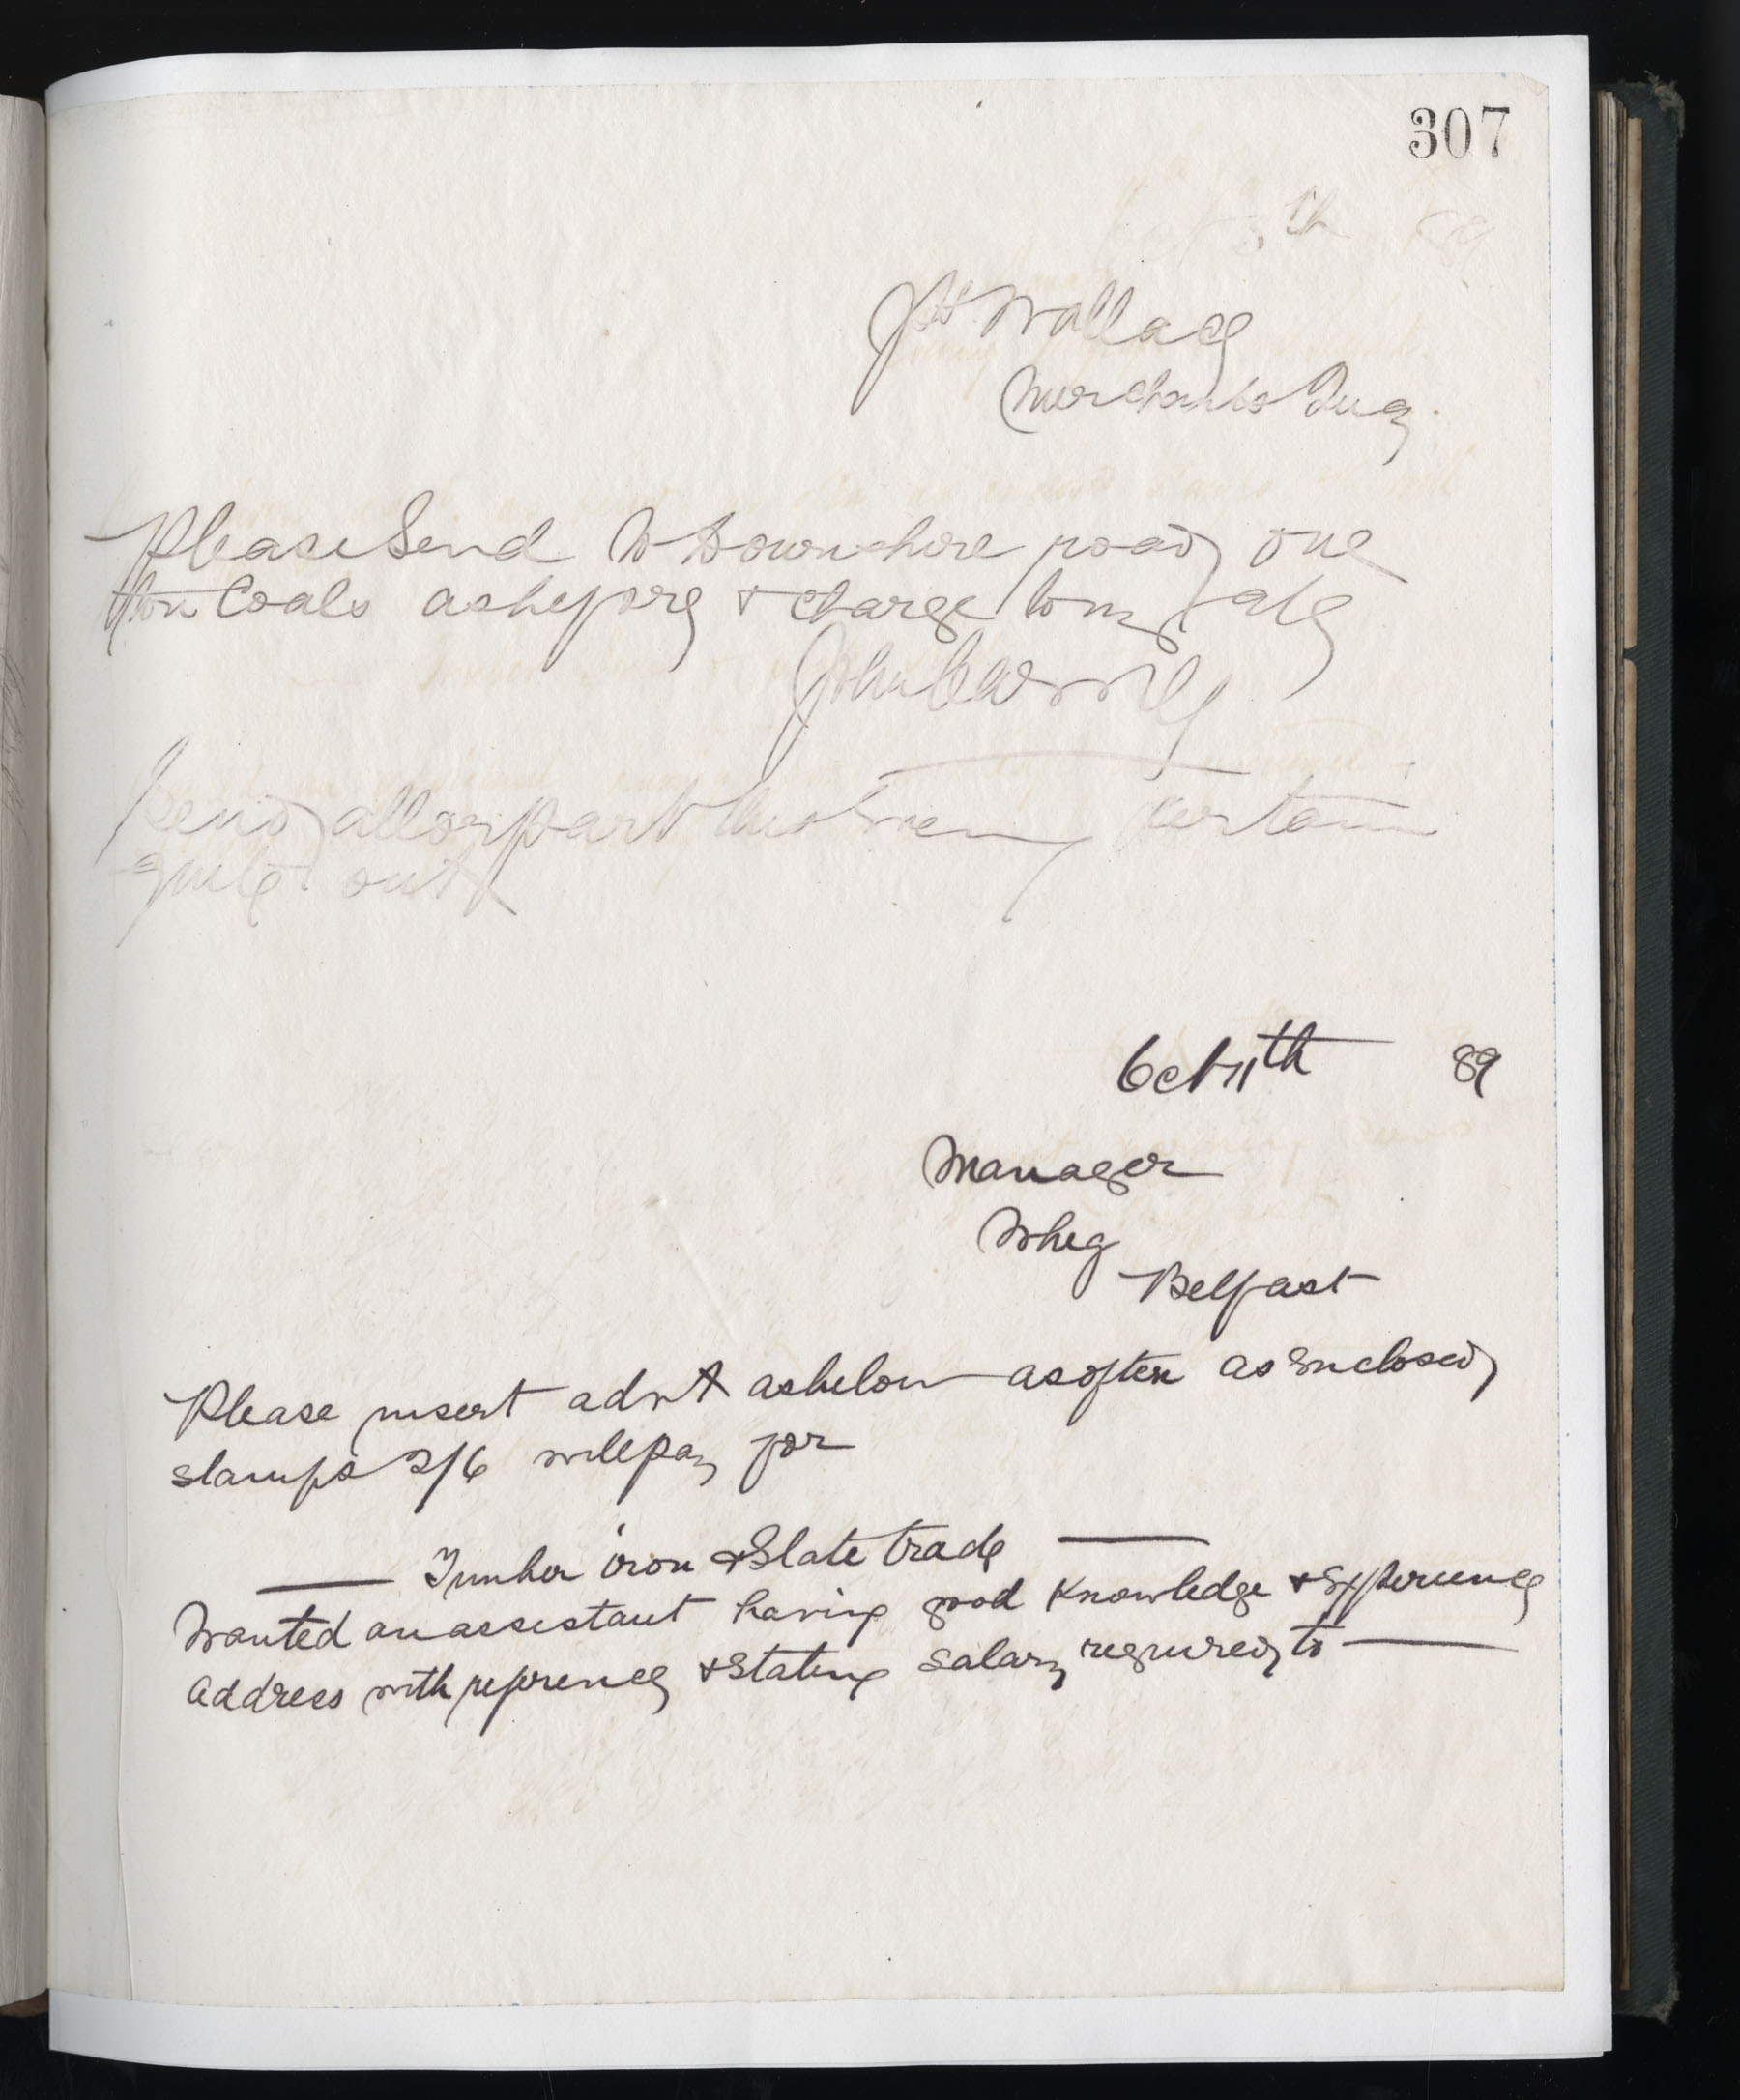 307
th 89
Jos Wallace
Merchants Quay
Please Send to Downshire road one
ton Coals as before & charge to my a/c
John
Send all or part this Evening certain
quite out
Oct 11th 89
Manager
Whig
Belfast
Please insert advt as below as often as Enclosed
stamps 2/6 will pay for
Timber iron & Slate trade
Wanted an assistant having good Knowledge & Experience
Address with reference & Stating Salary required to